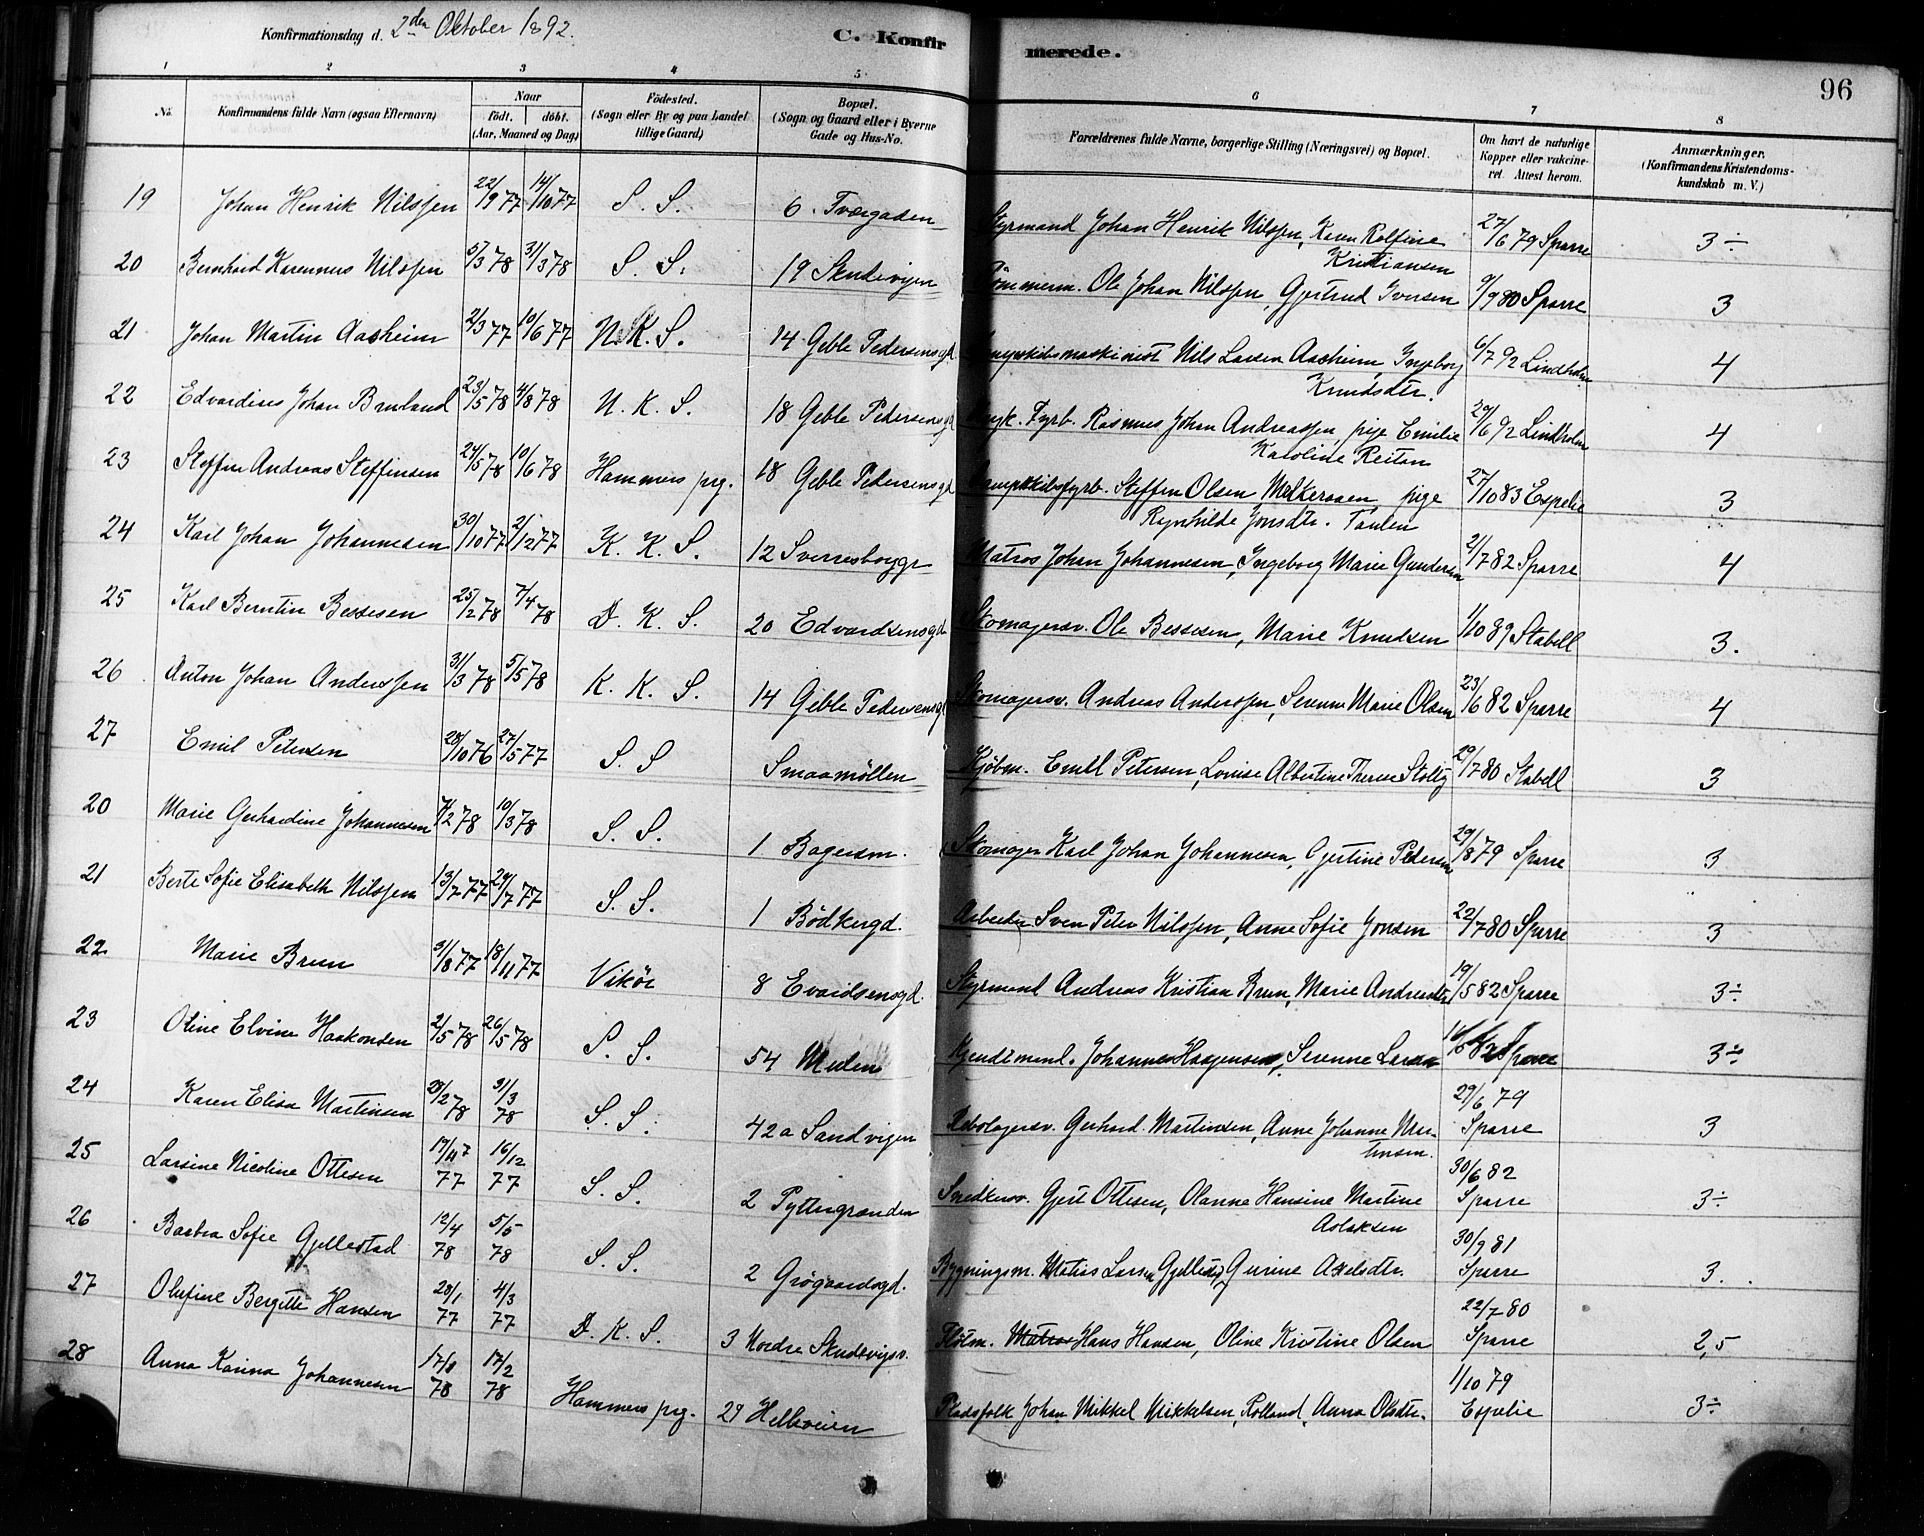 Konfirmationsdag d. 2den Oktober 1892.
C. Konfirmerede.
96
1 2 3 4 5 6 7 8
No.
Konfirmandens fulde Navn (ogsaa Efternavn)
Naar
födt. döbt.
(Aar, Maaned og Dag)
Födested.
(Sogn eller By og paa Landet tillige Gaard)
Bopæl.
(Sogn og Gaard eller i Byerne Gade og Hus-No.
Forældrenes fulde Navne, borgerlige Stilling (Næringsvei) og Bopæl.
Om havt de naturlige Kopper eller vakcineret. Attest herom.
Anmærkninger.
(Konfirmandens Kristendomskundskab m. V.)
19 Johan Henrik Nilssen 22/9 77 14/10 77 S. S. 6 Tværgaden Styrmand Johan Henrik Nilssen, Karen Rolfine Kristiansen 27/6 79 Sparre 3÷
20 Bernhard Karennus Nilssen 5/3 78 31/3 78 S. S. 19 Skudevigen Tömmerm. Ole Johan Nilssen, Gjertrud Iversen 9/9 80 Sparre 3
21 Johan Martin Aasheim 2/3 77 10/6 77 N. K. S. 14 Geble Pedersensgd Nils Larsen Aasheim, Ingeborg Knudsdtr. 6/7 92 Lindholm 4
22 Edvardines Johan Bruland 23/5 78 4/8 78 N. K. S. 18 Geble Pedersensgd Fyrb. Rasmus Johan Andreassen, pige Emilie Karoline Reitan 29/6 92 Lindholm 4
23 Steffen Andreas Steffensen 24/5 78 10/6 78 Hammers prg. 18 Geble Pedersensgd Steffen Olsen pige Jonsdtr. 27/10 83 Espelie 3
24 Karl Johan Johannesen 30/10 77 2/12 77 K. K. S. 12 Sverresborggt Matros Johan Johannesen, Ingeborg Marie Gundersen 2/7 82 Sparre 4
25 Karl Berntin Bessesen 25/2 78 7/4 78 D. K. S. 20 Edvardsensgd Skomagersv. Ole Bessesen, Marie Knudsen 1/10 89 Stabell 3.
26 Anton Johan Anderssen 31/3 78 5/5 78 K. K. S. 14 Geble Pedersensgd Skomagersv. Andreas Anderssen, Serenne Marie Olsen 23/6 82 Sparre 4
27 Emil Petersen 28/10 76 27/5 77 S. S Smaamöllen Kjöbm. Emil Petersen, Lovise Albertine Therese Stoltz 29/7 80 Stabell 3
20 Marie Gerhardine Johannesen 7/2 78 10/3 78 S. S. 1 Bagersm. Skomager Karl Johan Johannesen, Gjertine Pedersen 29/8 79 Sparre 3
21 Berte Sofie Elisabeth Nilssen 13/7 77 29/7 77 S. S. 1 Bödkergd. Arbeider Sven Peter Nilssen, Anne Sofie Jonsen 22/7 80 Sparre 3
22 Marie Brun 3/8 77 18/11 77 Vikör 8 Evardsensgd. Styrmand Andreas Kristian Brun, Marie Andreasdtr 19/5 82 Sparre 3÷
23 Oline Elvine Haakonsen 2/5 78 26/5 78 S. S. 54 Mulen Johannes Haagensen, Serenne Larsen 82 Sparre 3÷
24 Karen Elisa Martinsen 28/2 78 31/3 78 S. S. 42a Sandvigen Rebslagersv. Gerhard Martinsen, Anne Johanne Martinsen. 29/6 79 Sparre 3
25 Larsine Nicoline Ottesen 17/11 77 16/12 77 S. S. 2 Pyttergrænden Snedkersv. Gjert Ottesen, Olanne Hansine Martine Aslaksen 30/6 82 Sparre 3÷
26 Barbra Sofie Gjellestad 12/4 78 5/5 78 S. S. 2 Grögaardsgd. Bygningsm. Matias Larsen Gjellestad, Gurine Axelsdtr. 30/9 81 Sparre 3.
27 Olufine Bergitte Hansen 28/1 77 4/3 77 D. K. S. 3 Nordre Skudevigsv. Flötm. Matros Hans Hansen, Oline Kristine Olsen 22/7 80 Sparre 2,5
28 Anna Karina Johannesen 17/1 78 17/2 78 Hammers prg. 29 Helleveien Pladsfolk Johan Mikkel Mikkelsen, Rolland, Anna Olsdtr. 1/10 79 Espelie 3÷